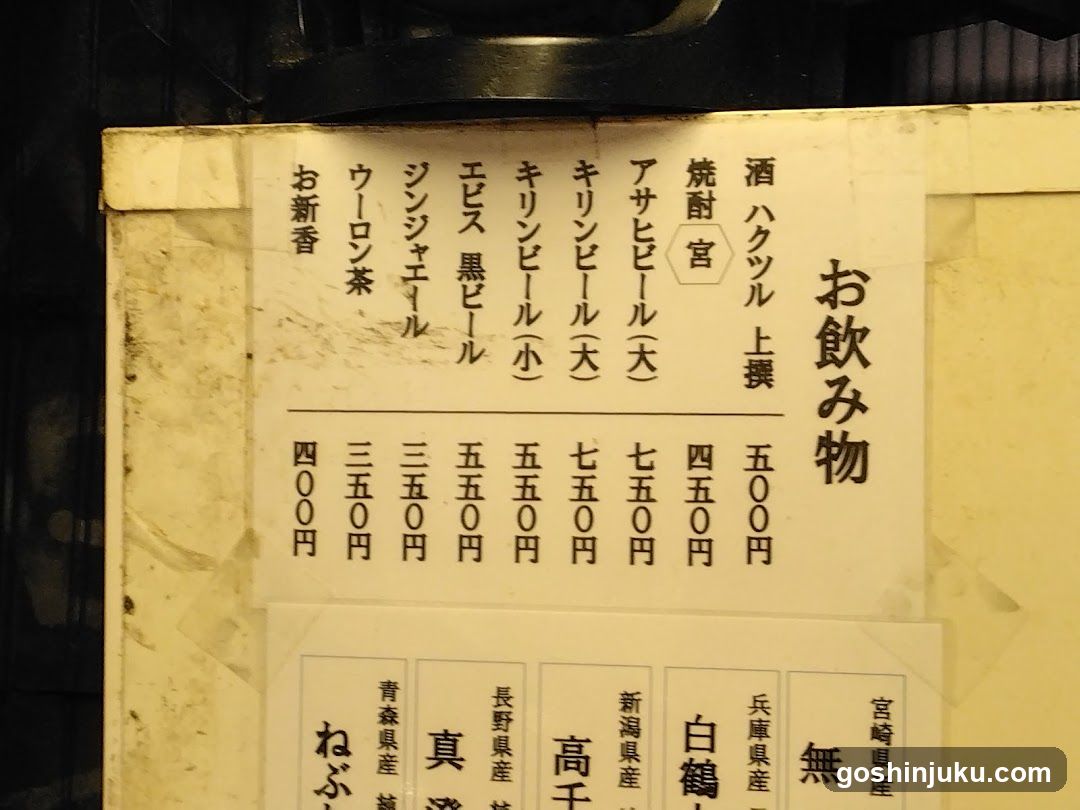 お飲み物
酒 ハクツル 上撰 五〇〇円
焼酎 宮 四五〇円
アサヒビール(大) 七五〇円
キリンビール(大) 七五〇円
キリンビール(小) 五五〇円
エビス 黒ビール 五五〇円
ジンジャエール 三五〇円
ウーロン茶 三五〇円
お新香 四〇〇円
宮崎県産
無
兵庫県産
白鶴
新潟県産
高千
長野県産
真澄
青森県産
ねぶ
goshinjuku.com